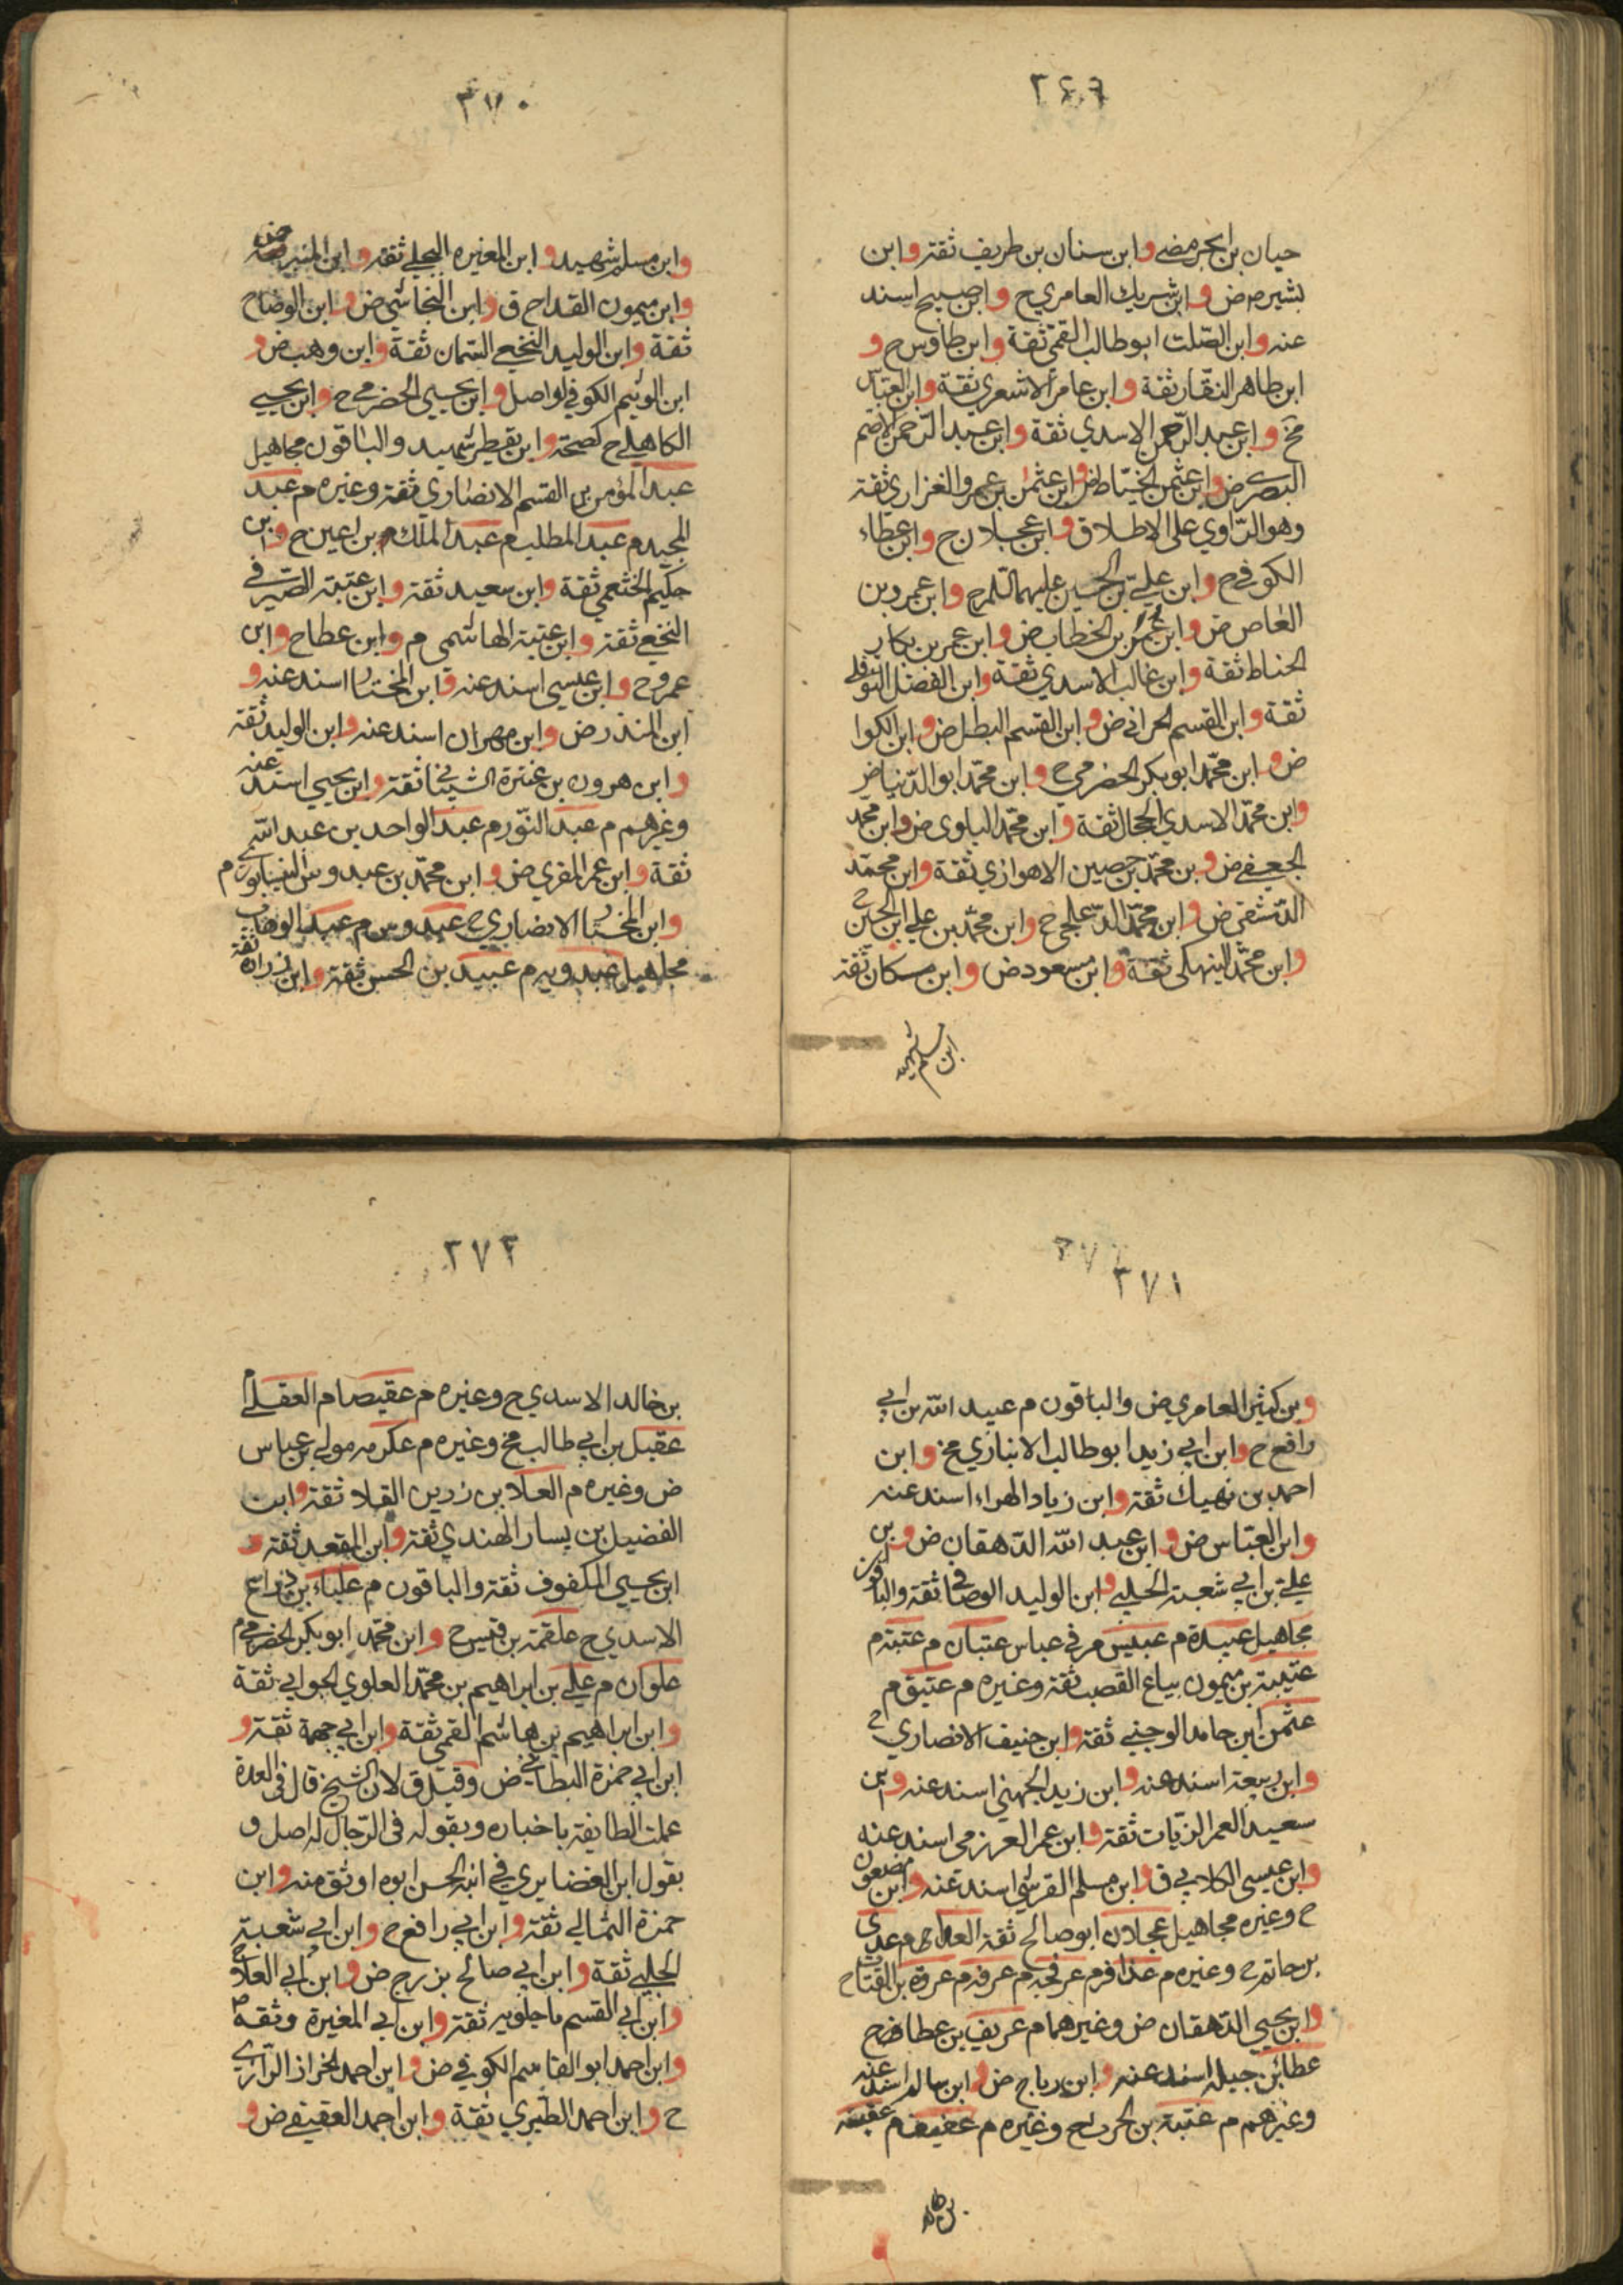 ٣٦٩
حيان بن ابجر مضى وابن سنان بن طريف ثقة وابن
بشير م ض وابن شريك العامري ح وابن صبيح اسند
عنه وابن الصلت ابو طالب القمي ثقة وابن طاوس ح و
ابن طاهر النقار ثقة وابن عامر الاشعري ثقة وابن العباس
مخ وابن عبد الرحمن الاسدي ثقة وابن عبد الرحمن الاصم
البصري ض وابن عثمن الخياط ض وابن عثمن بن عمرو الفزاري ثقة
وهو الراوي على الاطلاق وابن عجلان ح وابن عطاء
الكوفي ح وابن علي بن الحسين عليهما السلام ح وابن عمرو بن
العاص ض وابن عمر بن الخطاب ض وابن عمر بن بكار
الحناط ثقة وابن غالب الاسدي ثقة وابن الفضل النوفلي
ثقة وابن القسم الحراني ض وابن القسم البطل ض وابن الكوا
ض وابن محمد ابو بكر الحضرمي ح وابن محمد ابو الدنيا ض
وابن محمد الاسدي الحجال ثقة وابن محمد البلوي ض وابن محمد
الجعفي ض وبن محمد بن حصين الاهوازي ثقة وابن محمد
الدمشقي ض وابن محمد الدعلجي ح وابن محمد بن علي ابن الحسين ح
وابن محمد النهيكي ثقة وابن مسعود ض وابن مسكان ثقة
ابن مسلم شهيد
٣٧٠
وابن مسلم شهيد وابن المغيره البجلي ثقة وابن المنبر ض
وابن ميمون القداح ق وابن النجاشي ض وابن الوضاح
ثقة وابن الوليد النخعي السمان ثقة وابن وهب ض و
ابن الوثيم الكوفي لواصل وابن يحيى الحضرمي ح وابن يحيى
الكاهلي ح كصحة وابن يقطر شهيد والباقون مجاهيل
عبد المؤمن بن القسم الانصاري ثقة وغيره م عبد
المجيد م عبد المطلب م عبد الملك بن اعين ح وابن
حكيم الخثعمي ثقة وابن سعيد ثقة وابن عتبة الصيرفي
النخعي ثقة وابن عتبة الهاشمي م وابن عطا ح وابن
عمرو ح وابن عيسى اسند عنه وابن المختار اسند عنه و
ابن المنذر ض وابن مهران اسند عنه وابن الوليد ثقة
وابن هرون بن عنترة الشيباني ثقة وابن يحيى اسند عنه
وغيرهم م عبد النور م عبد الواحد بن عبد الله
ثقة وابن عمر المقري ض وابن محمد بن عبدوس النيسابوري م
وابن المختار الانصاري ح عبدوس م عبد الوهاب
مجاهيل عبدويه م عبيد بن الحسن ثقة وابن زرارة ثقة
٣٧١
وبن كثير العامري ض والباقون م عبيد الله بن ابي
رافع ح وابن ابي زيد ابو طالب الانباري مخ وابن
احمد بن نهيك ثقة وابن زياد الهراء اسند عنه
وابن العباس ض وابن عبد الله الدهقان ض وبن
علي بن ابي شعبة الحلبي وابن الوليد الوصافي ثقة والباقون
مجاهيل عبيدة م عبيس مر في عباس عتبان م عتبة م
عتيبة بن ميمون بياع القصب ثقة وغيره م عتيق م
عثمن ابن حامد الوجيني ثقة وابن حنيف الانصاري ح
وابن ربيعة اسند عنه وابن زيد الجهني اسند عنه وبن
سعيد العمر الزيات ثقة وابن عمر العرزمي اسند عنه
وابن عيسى الكلابي ق وابن مسلم القرشي اسند عنه وابن مضعون
ح وغيره مجاهيل عجلان ابو صالح ثقة العدا م عدي
بن حاتم ح وغيره م عذافر م عرفجه م عرفه م عروة بن القتات ح
وابن يحيى الدهقان ض وغيرهما م عريف بن عطا ض ح
عطا بن جبله اسند عنه وابن رباح ض وابن سالم اسند عنه
وغيرهم م عتبة بن الحرث ح وغيره م عفيف م عقبة
بن خالد
٣٧٢
بن خالد الاسدي ح وغيره م عقيصا م العقيلي م
عقيل بن ابي طالب مخ وغيره م عكرمه مولى بن عباس
ض وغيره م العلا بن رزين القلا ثقة وابن
الفضيل بن يسار الهندي ثقة وابن المقعد ثقة و
ابن يحيى المكفوف ثقة والباقون م علباء بن ذراع
الاسدي ح علقمة بن قيس ح وابن محمد ابو بكر الحضرمي م
علوان م علي بن ابراهيم بن محمد العلوي الجواني ثقة
وابن ابراهيم بن هاشم القمي ثقة وابن ابي جهمة ثقة و
ابن ابي حمزة البطائني ض وقيل ق لان الشيخ قال في العدة
عملت الطايفة باخباره وبقوله في الرجال له اصل و
بقول ابن الغضايري في ابنه الحسن ابوه اوثق منه وابن
حمزة الثمالي ثقة وابن ابي رافع ح وابن ابي شعبة
الحلبي ثقة وابن ابي صالح بزرج ض وابن ابي العلا ح
وابن ابي القسم ماجلويه ثقة وابن ابي المغيرة وثقه ص
وابن احمد ابو القاسم الكوفي ض وابن احمد الخراز الرازي
ح وابن احمد الطبري ثقة وابن احمد العقيقي ض و